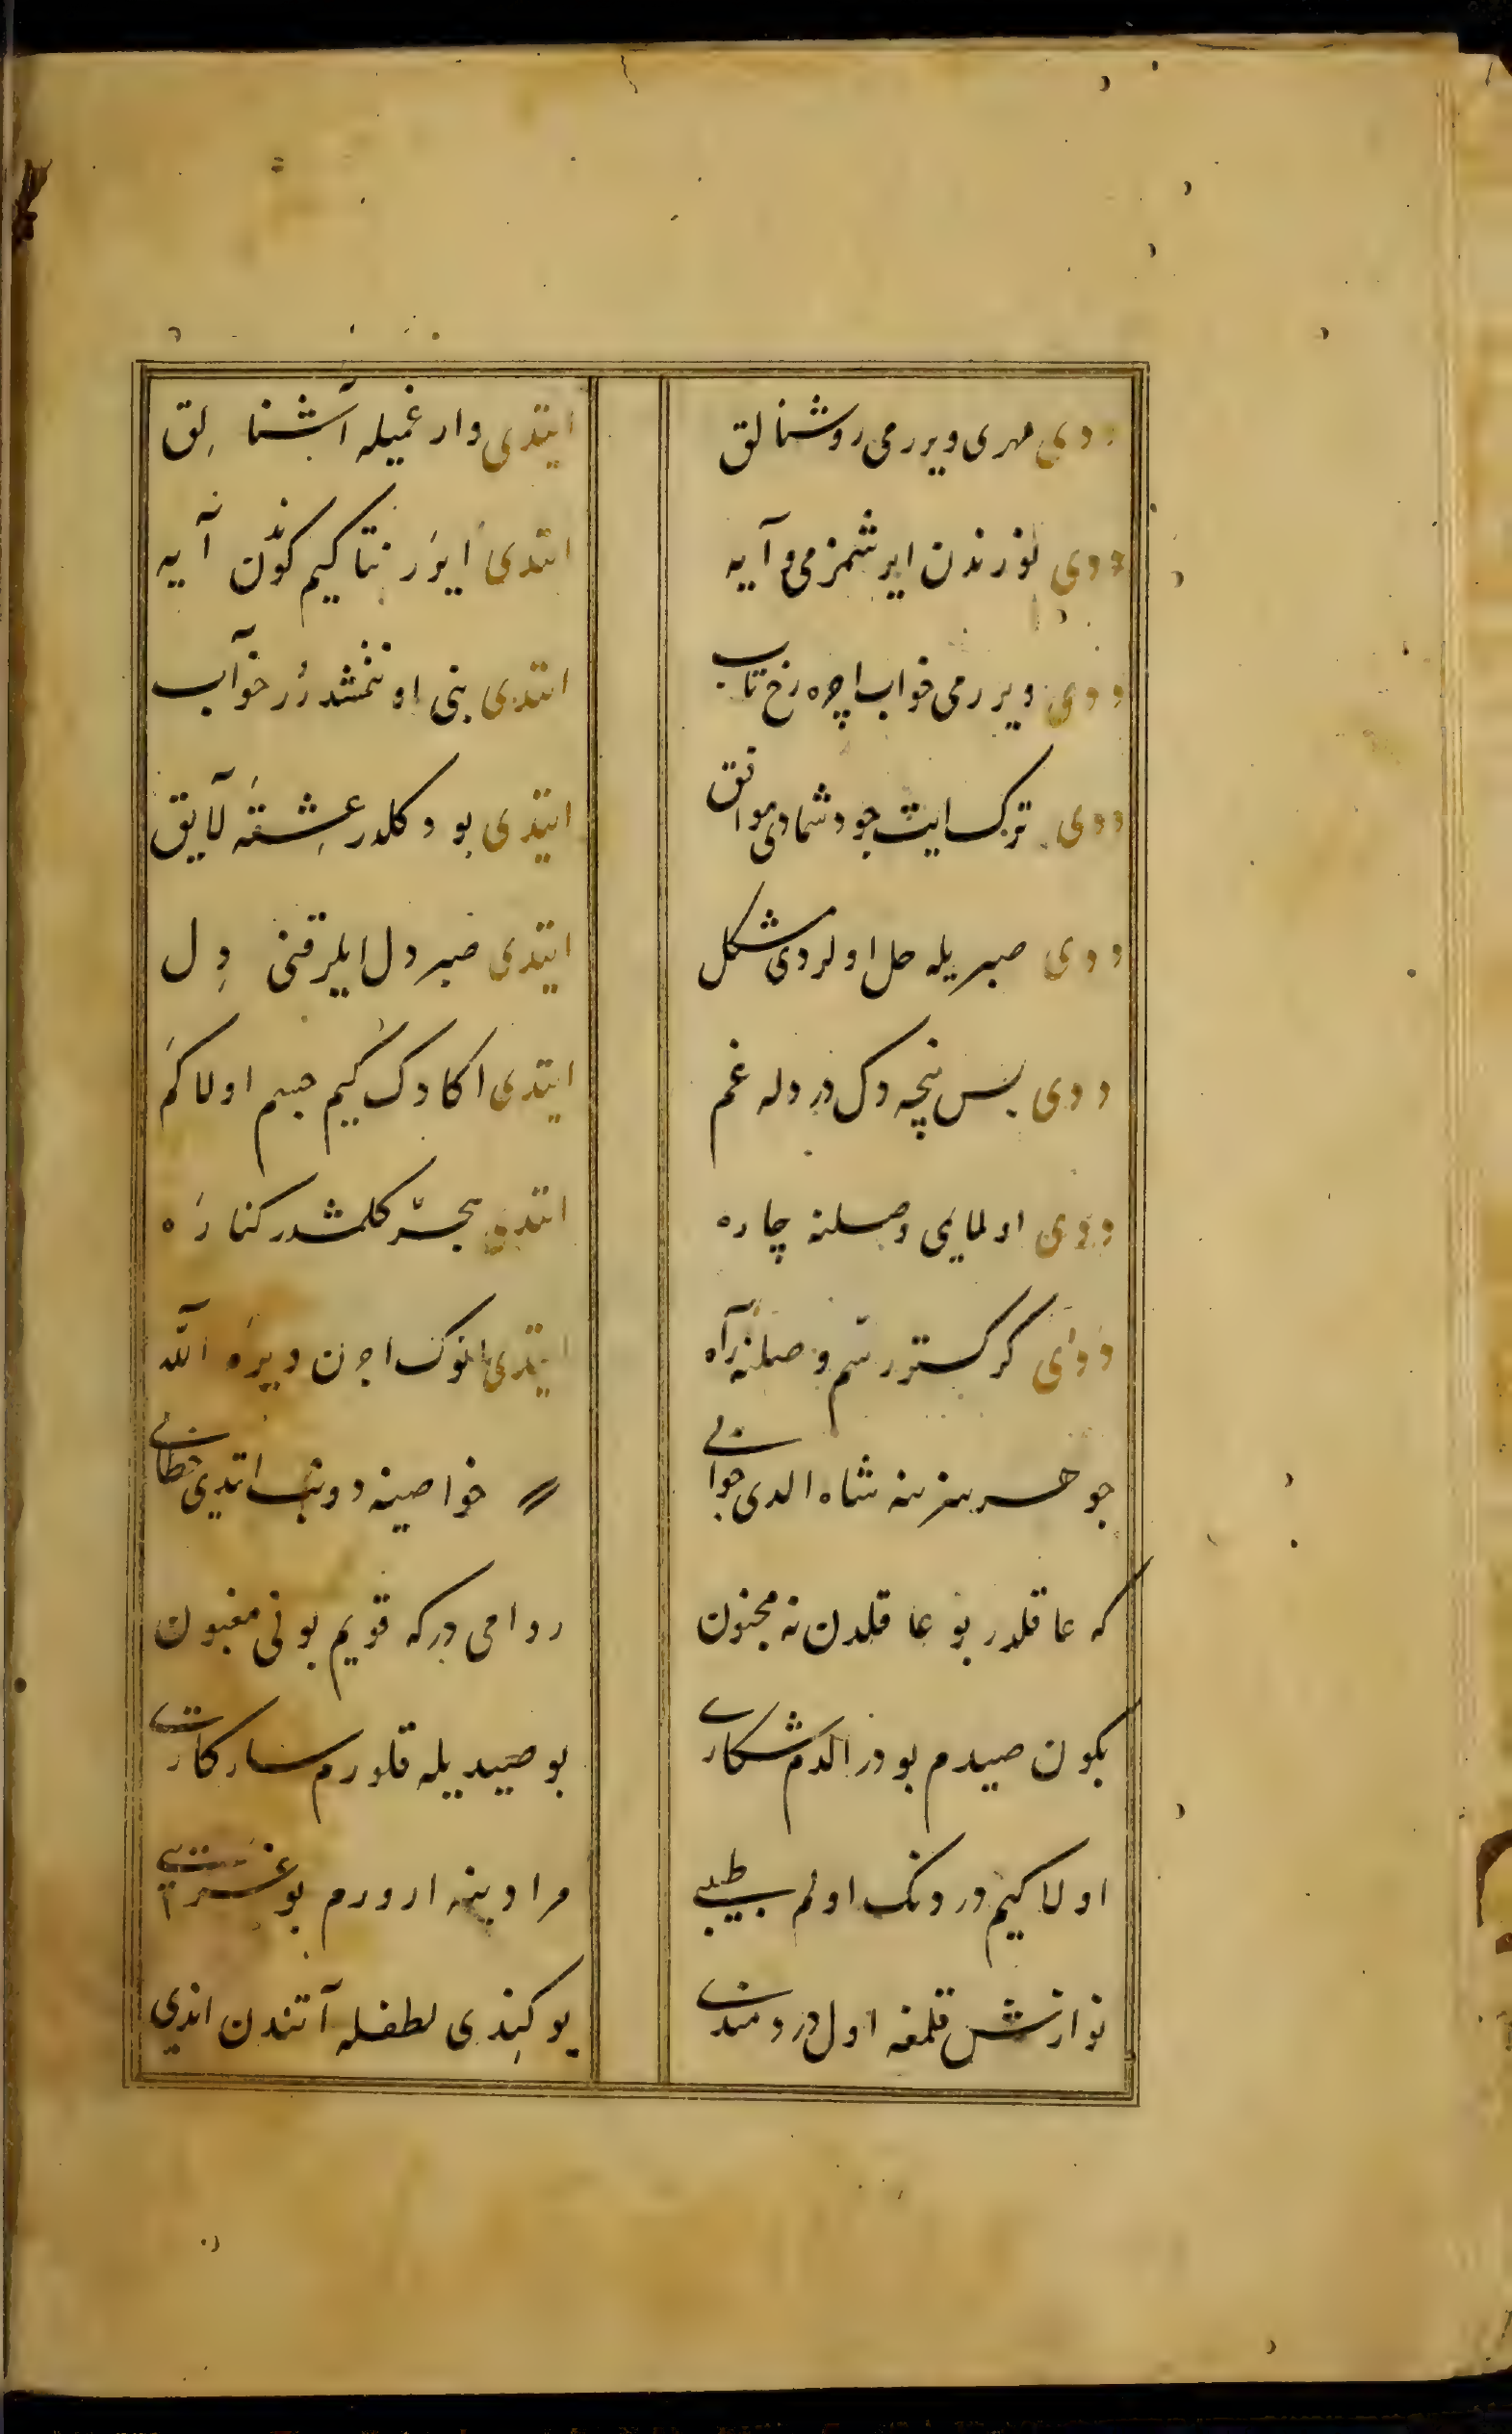 ددی مهری ویررمی روشنالق ایتدی وار غمیله آشنالِق
ددی نوزندن ایرشمزمی آیه ایتدی ایرر نتاکیم کوندن آیه
ددی ویررمی خواب اچره رخ تاب ایتدی بنی اونتمشدرر خوآب
ددی ترک ایت جو دشمادی موافق ایتدی بو دکلدر عِشقه لآیق
ددی صبریله حل اولردی مشکل ایتدی صبر دل ایلر قنی دِل
ددی بس نیچه دک در دله غم ایتدی اکا دک کیم جسم اولا کم
ددی اولمایمی وصلنه چاره ایتدی بحر کلمشدر کناره
ددی کرکسترسم وصلنه رآه ایتدی انوک اچون ویره الله
جو هر سزنه شاه الدی جوابی خواصینه دونب ایتدی خطابی
که عاقلدر بو عاقلدن نه مجنون روامی درکه قویم بونی مغبون
بکون صیدم بودر الدم شکاری بو صید یله قلورم سازکاری
اولا کیم دردنک اولم طبیبی مرادینه ارورم بو غریبی
نوازش قلمغه اول دردمندی یوکندی لطفله آتندن اندی